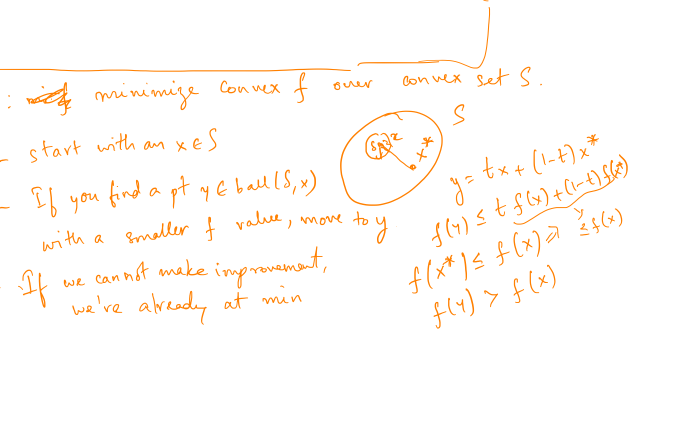 : minimize convex f over convex set S.
- start with an x ∈ S
- If you find a pt y ∈ ball(δ, x)
with a smaller f value, move to y
- If we cannot make improvement,
we've already at min
S
δ x
x*
y = tx + (1-t)x*
f(y) ≤ t f(x) + (1-t) f(x*)
f(x*) ≤ f(x) ⇒ ≤ f(x)
f(y) > f(x)